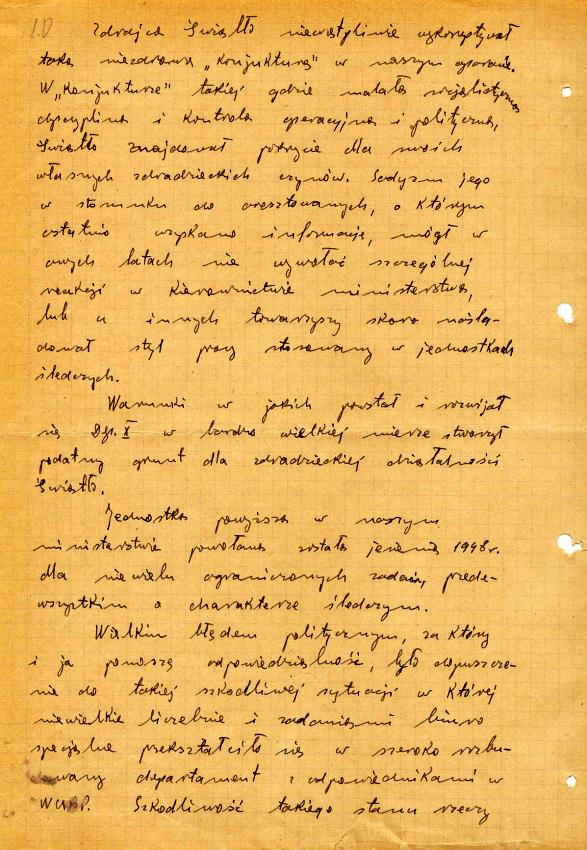 Zdrajca Światło niewątpliwie wykorzystywał
taką niezdrową „konjukturę" w naszym aparacie.
W „konjukturze" takiej gdzie malała socjalistyczna
dyscyplina i kontrola operacyjna i polityczna,
Światło znajdował pokrycie dla swoich
własnych zdradzieckich czynów. Sadyzm jego
w stosunku do aresztowanych, o którym
ostatnio uzyskano informacje, mógł w
owych latach nie wywołać szczególnej
reakcji w kierownictwie ministerstwa,
lub u innych towarzyszy skoro naśla-
dował styl pracy stosowany w jednostkach
śledczych.
Warunki w jakich powstał i rozwijał
się Dep. X w bardzo wielkiej mierze stworzył
podatny grunt dla zdradzieckiej działalności
Światło.
Jednostka powyższa w naszym
ministerstwie powołana została jesienią 1948 r.
dla niewielu ograniczonych zadań, przede-
wszystkim o charakterze śledczym.
Wielkim błędem politycznym, za który
i ja ponoszę odpowiedzialność, było dopuszcze-
nie do takiej szkodliwej sytuacji w której
niewielkie liczebnie i zadaniami biuro
specjalne przekształciło się w szeroko rozbu-
dowany departament z odpowiednikami w
WUBP. Szkodliwość takiego stanu rzeczy